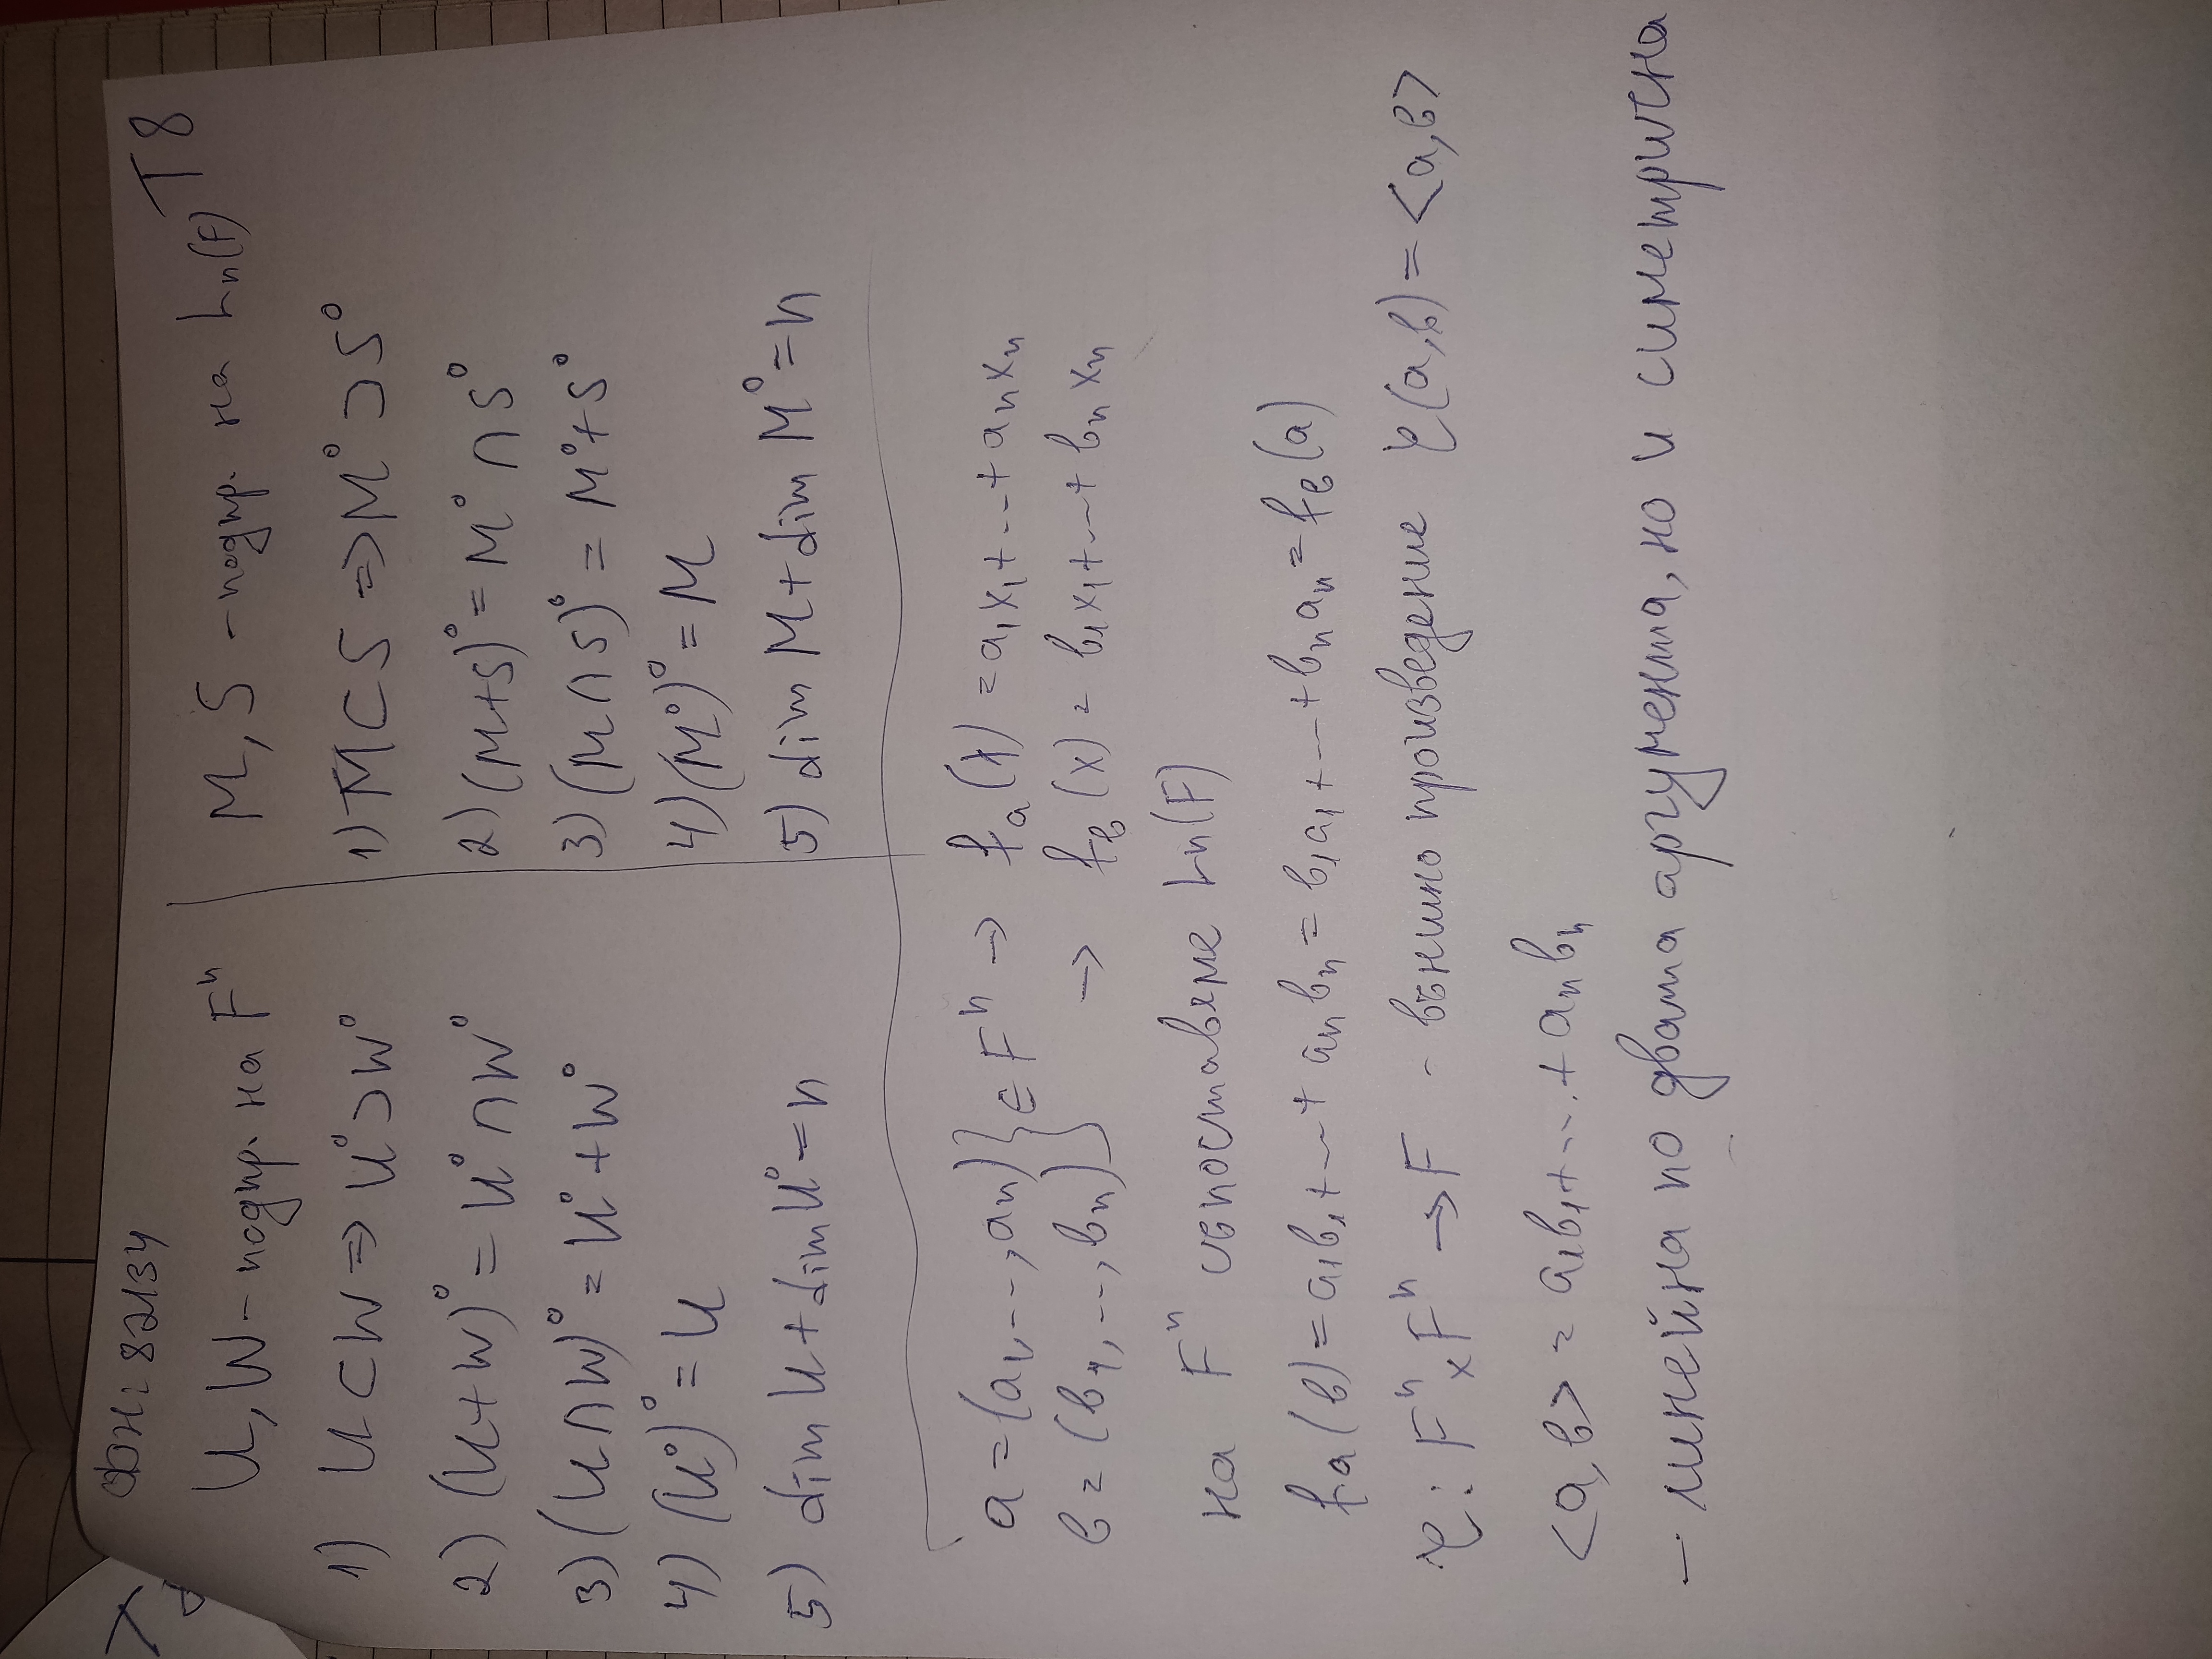 ФН: 82134
T 8
U, W - подпр. на Fⁿ
1) U ⊂ W ⇒ U° ⊃ W°
2) (U+W)° = U° ∩ W°
3) (U ∩ W)° = U° + W°
4) (U°)° = U
5) dim U + dim U° = n
M, S - подпр. на Ln(F)
1) M ⊂ S ⇒ M° ⊃ S°
2) (M+S)° = M° ∩ S°
3) (M ∩ S)° = M° + S°
4) (M°)° = M
5) dim M + dim M° = n
a = (a₁, ..., aₙ) } ∈ Fⁿ → fₐ(x) = a₁x₁ + ... + aₙxₙ
в = (в₁, ..., вₙ) } → f_в(x) = в₁x₁ + ... + вₙxₙ
на Fⁿ съпоставяме Ln(F)
fₐ(в) = a₁в₁ + ... + aₙвₙ = в₁a₁ + ... + вₙaₙ = f_в(a)
: Fⁿ × Fⁿ → F - външно произведение (a, в) = <a, в>
<a, в> = a₁в₁ + ... + aₙвₙ
- линейна по двата аргумента, но и симетрична